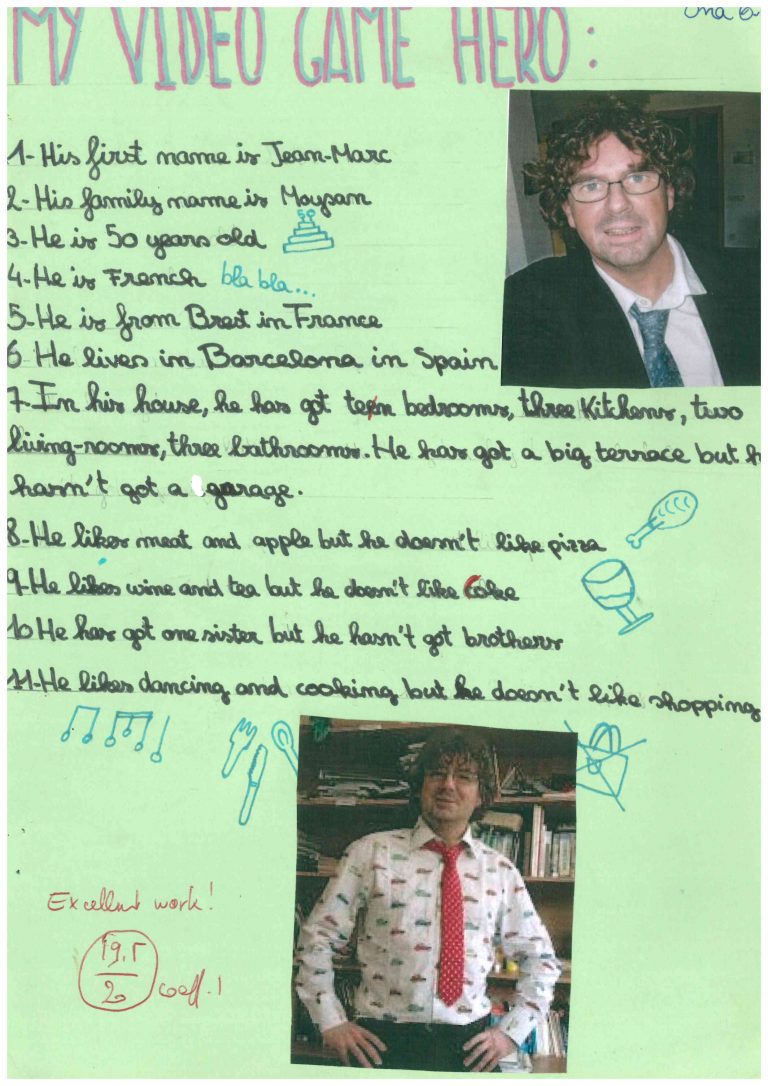 MY VIDEO GAME HERO :
1- His first name is Jean-Marc
2- His family name is Moysan
50
3- He is 50 years old
4- He is French bla bla...
5- He is from Brest in France
6 He lives in Barcelona in Spain
7- In his house, he has got teen bedrooms, three Kitchens, two
living-rooms, three bathrooms. He has got a big terrace but h
hasn't got a garage.
8- He likes meat and apple but he doesn't like pizza
9- He likes wine and tea but he doesn't like Coke
10 He has got one sister but he hasn't got brothers
11- He likes dancing and cooking but he doesn't like shopping
Excellent work!
19,5
20
coeff. 1